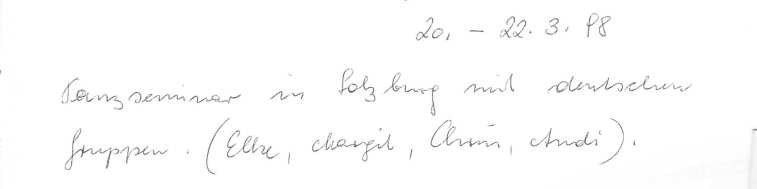 20. - 22. 3. 98
Tanzseminar in Salzburg mit deutschen
Gruppen. (Elke, Margit, Chris, Andi).